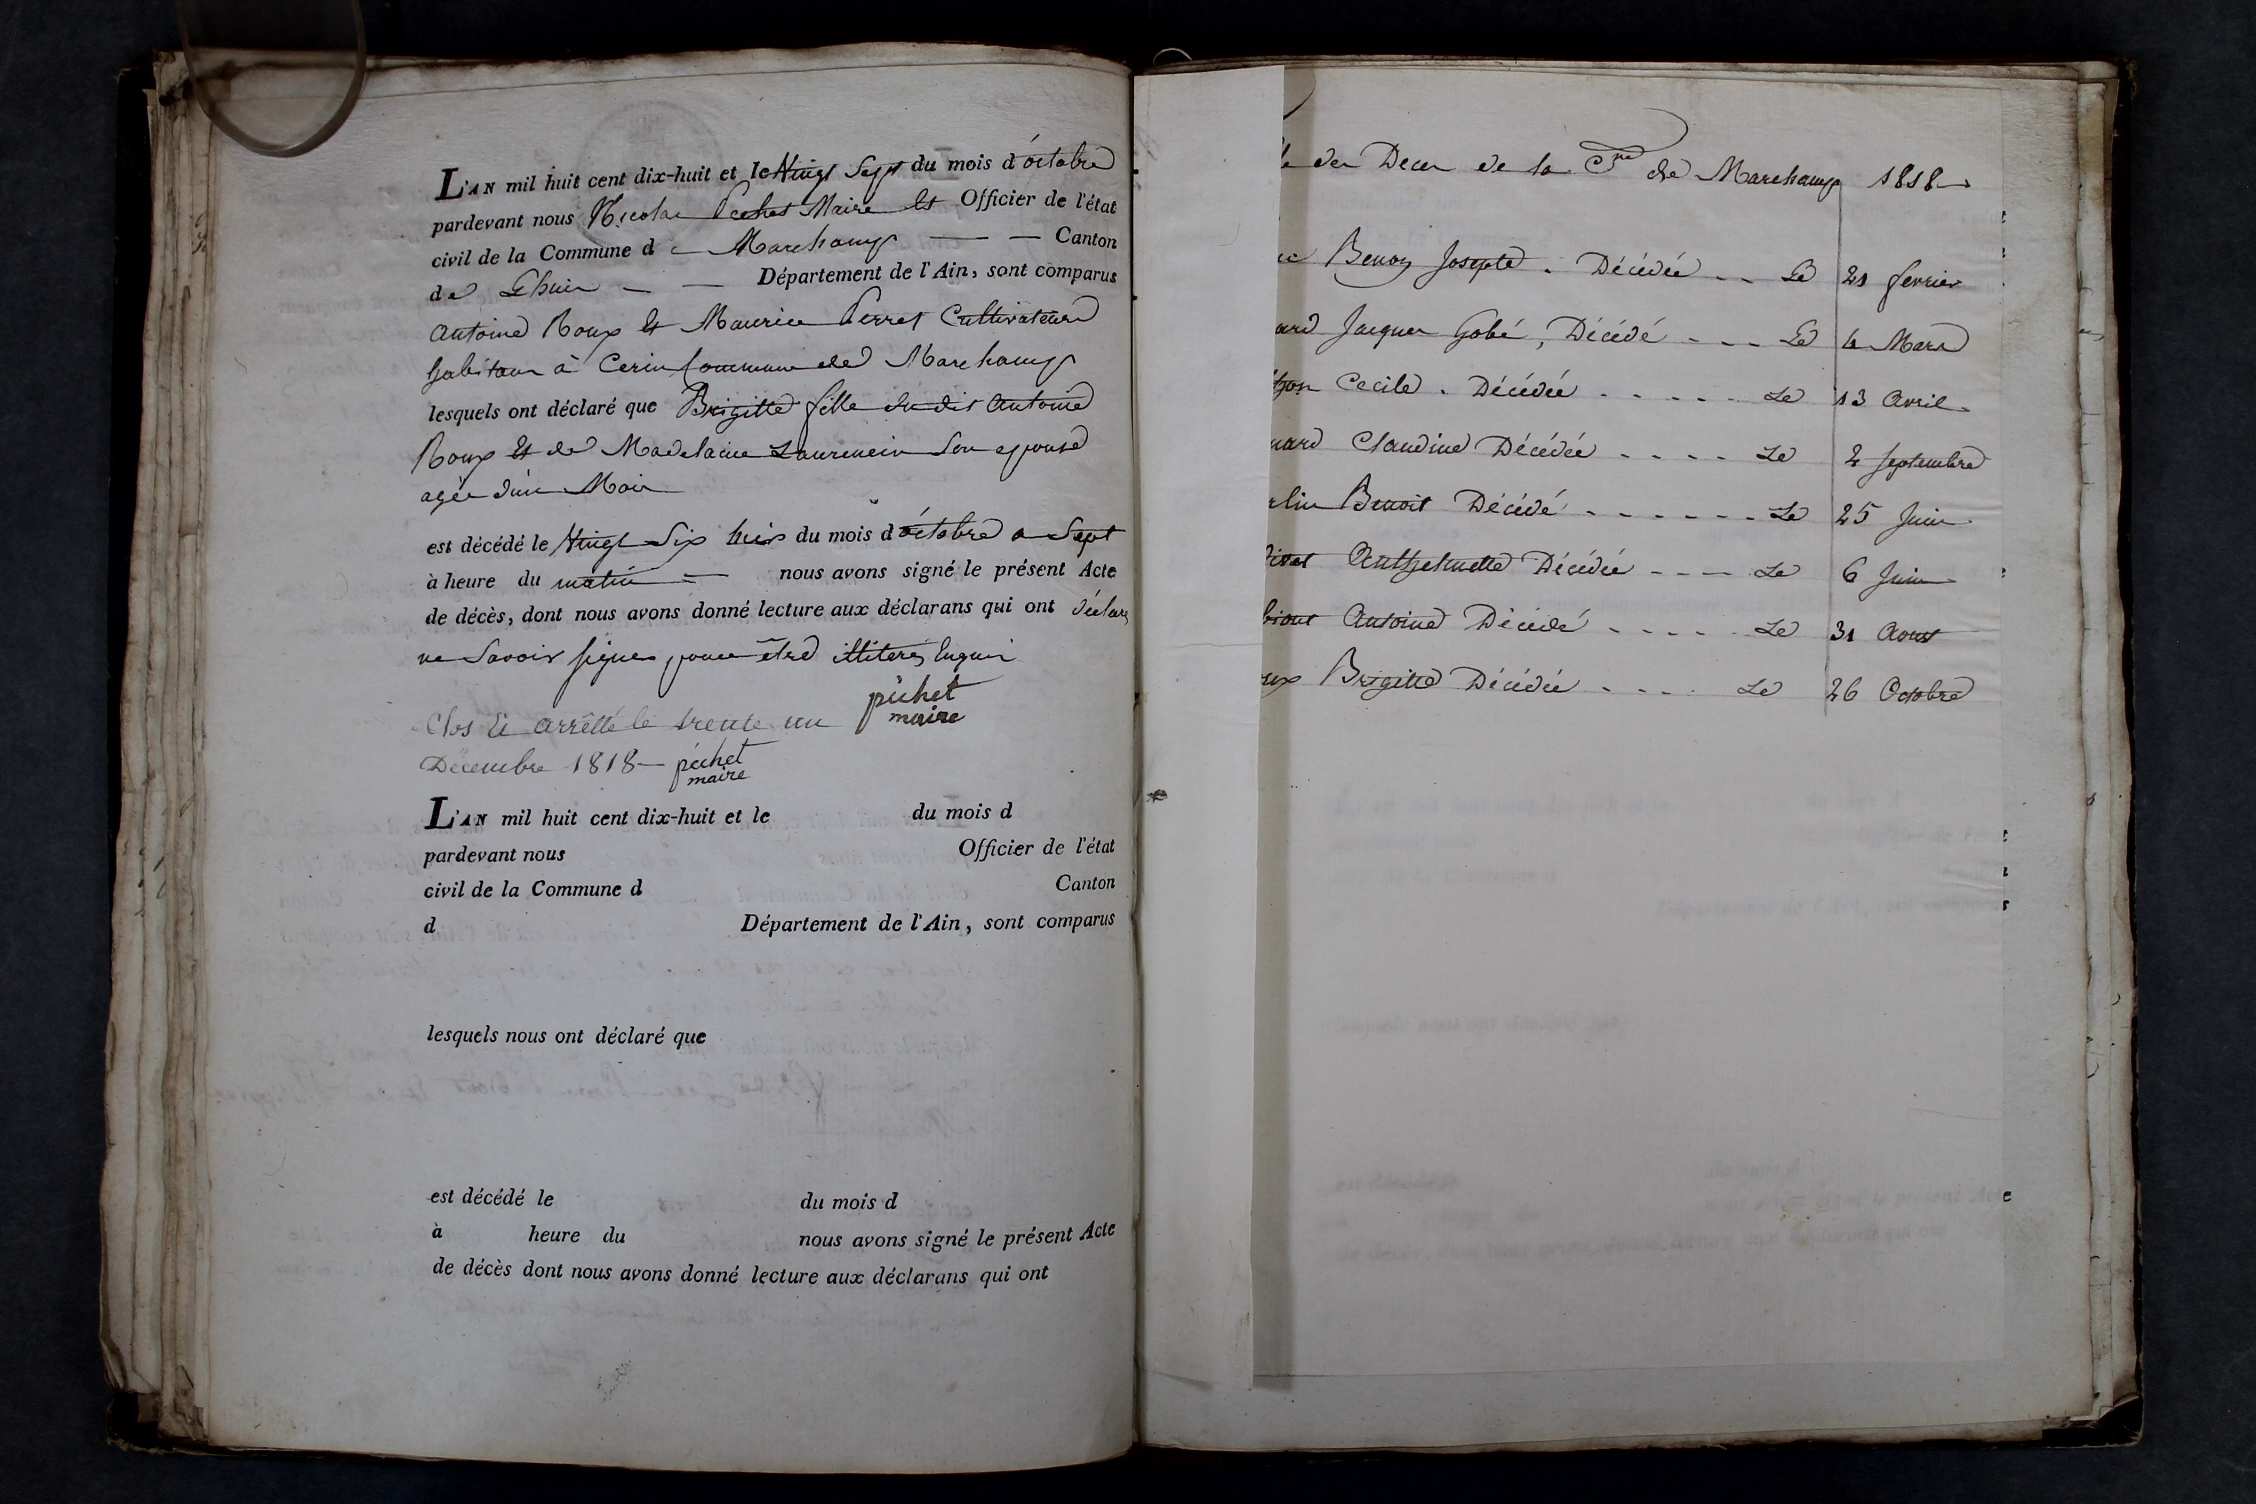 L'AN mil huit cent dix-huit et le Vingt Sept du mois d'octobre
pardevant nous Nicolas Pechet Maire et Officier de l'état
civil de la Commune de Marchamp — — Canton
de Lhuis — — Département de l'Ain, sont comparus
antoine Roux et Maurice Perret Cultivateurs
habitans à Cerin Commune de Marchamp
lesquels ont déclaré que Brigitte fille du dit Antoine
Roux et de Madelaine Laurencin Son epouse
agée d'un Mois
est décédé le Vingt Six huis du mois d'octobre a Sept
à heure du matin — nous avons signé le présent Acte
de décès, dont nous avons donné lecture aux déclarans qui ont déclaré
ne Savoir signer pour être illiterés
pèchet
maire
Clos et arrêtté le trente un
Décembre 1818 — pèchet
maire
L'AN mil huit cent dix-huit et le du mois d
pardevant nous Officier de l'état
civil de la Commune d Canton
d Département de l'Ain, sont comparus
lesquels nous ont déclaré que
est décédé le du mois d
à heure du nous avons signé le présent Acte
de décès dont nous avons donné lecture aux déclarans qui ont
des Deces de la Cne de Marchamp 1818
Benoy Josepte. Décédée - - Le 21 fevrier
Jacques Gobé, Décédé - - - Le 4 Mars
Cecile. Décédée - - - - - Le 13 Avril
Claudine Décédée - - - - Le 2 Septembre
Benoit Décédé - - - - - - Le 25 Juin
Anthelmette Décédée - - - Le 6 Juin
Antoine Décédé - - - - Le 31 Aoust
Brigitte Décédée - - - - Le 26 Octobre